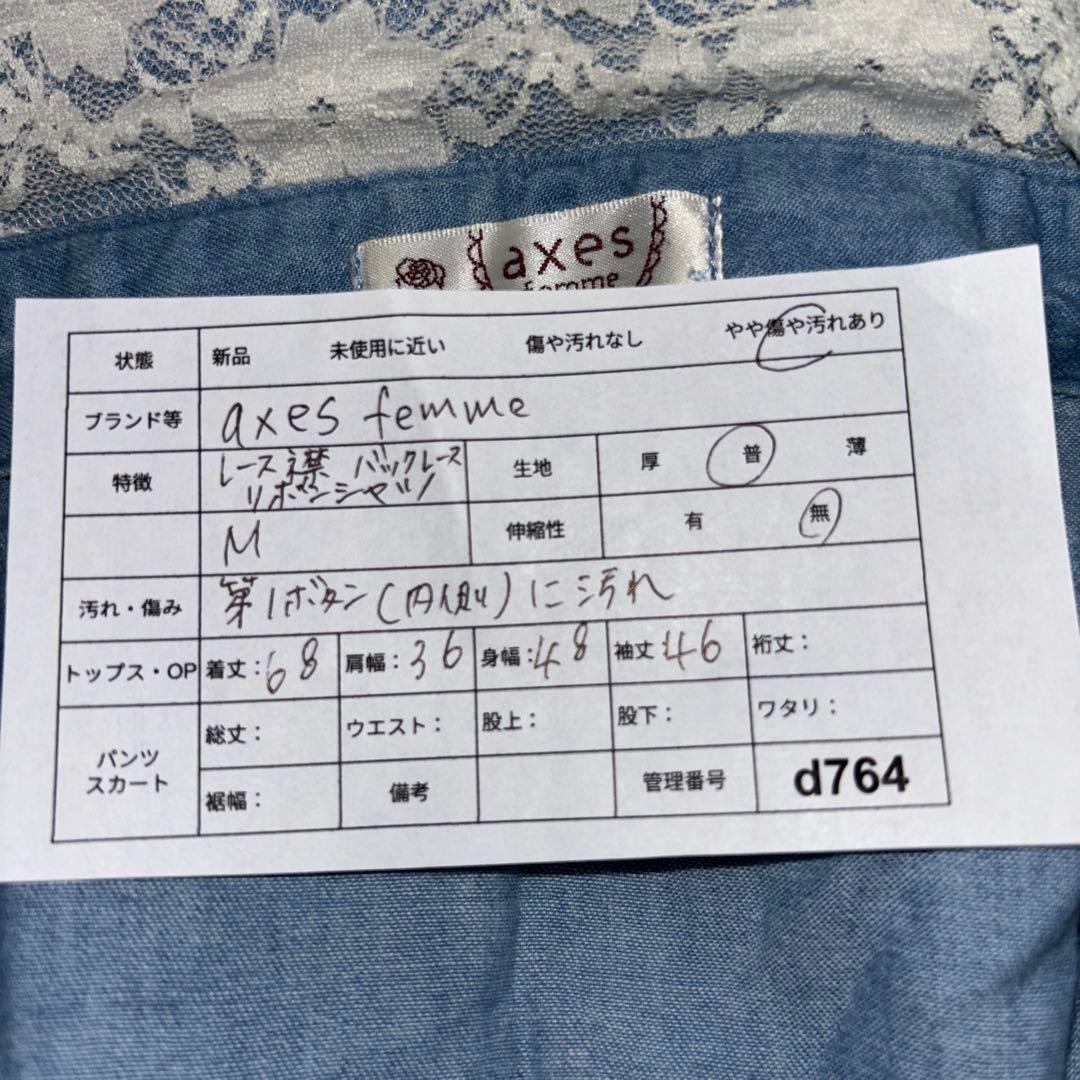 axes
femme
状態 新品 未使用に近い 傷や汚れなし やや傷や汚れあり
ブランド等 axes femme
特徴 レース襟 バックレース
リボンシャツ
生地 厚 普 薄
M 伸縮性 有 無
汚れ・傷み 第1ボタン(内側)に汚れ
トップス・OP 着丈:68 肩幅:36 身幅:48 袖丈46 裄丈:
パンツ
スカート
総丈: ウエスト: 股上: 股下: ワタリ:
裾幅: 備考 管理番号 d764